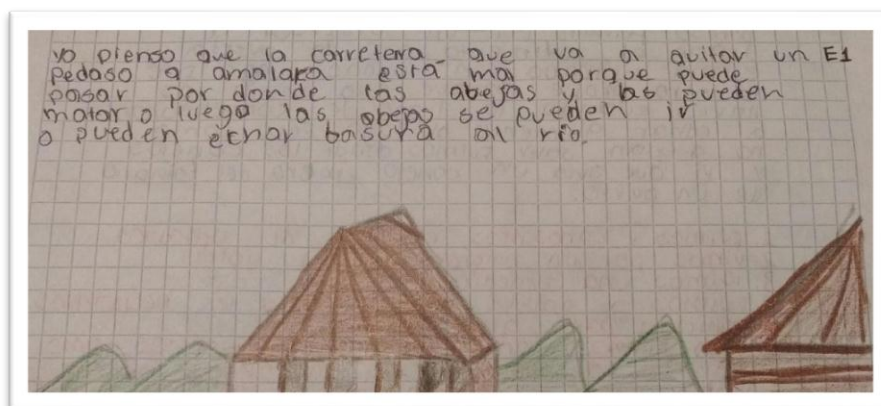 yo pienso que la carretera que va a quitar un E1
pedaso a amalara esta mal porque puede
pasar por donde las abejas y las pueden
matar o luego las abejas se pueden ir
o pueden echar basura al rio.